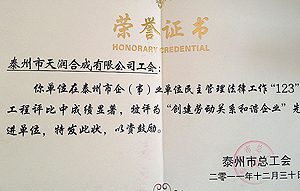 荣誉证书
HONORARY CREDENTIAL
泰州市天润合成有限公司工会：
你单位在泰州市企（事）业单位民主管理法律工作“123”
工程评比中成绩显著，被评为“创建劳动关系和谐企业”先
进单位，特发此状，以资鼓励。
泰州市总工会
二〇一一年十二月三十日